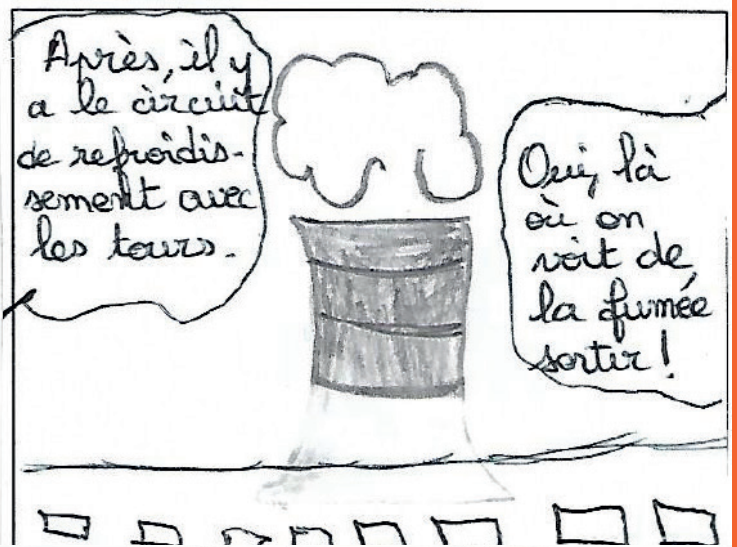 Après, il y
a le circuit
de refroidis-
sement avec
les tours.
Oui, là
où on
voit de
la fumée
sortir!